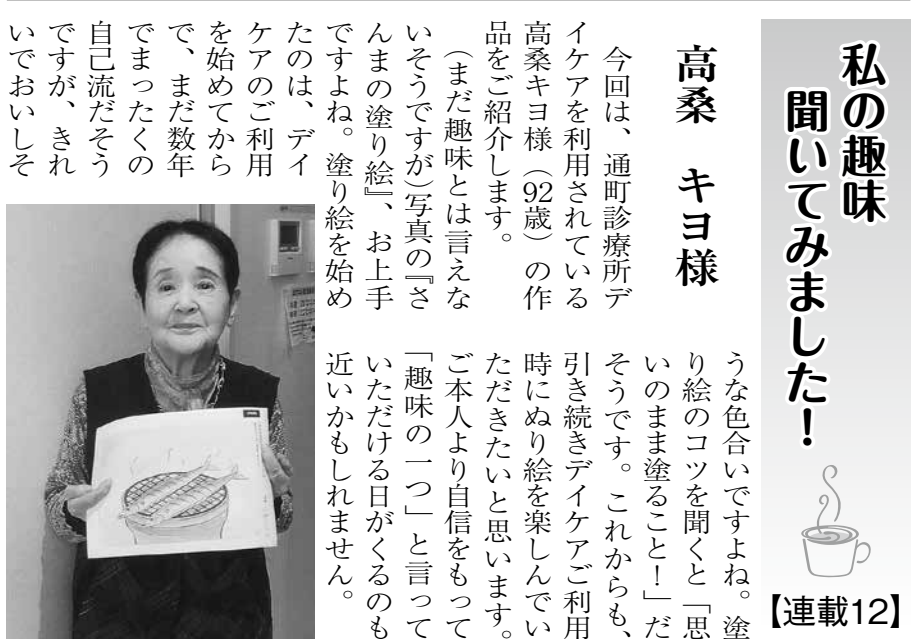 私の趣味
聞いてみました！
【連載12】
高桑　キヨ様
　今回は、通町診療所デ
イケアを利用されている
高桑キヨ様（92歳）の作
品をご紹介します。
　（まだ趣味とは言えな
いそうですが）写真の『さ
んまの塗り絵』、お上手
ですよね。塗り絵を始め
たのは、デイ
ケアのご利用
を始めてから
で、まだ数年
でまったくの
自己流だそう
ですが、きれ
いでおいしそ
うな色合いですよね。塗
り絵のコツを聞くと「思
いのまま塗ること！」だ
そうです。これからも、
引き続きデイケアご利用
時にぬり絵を楽しんでい
ただきたいと思います。
ご本人より自信をもって
「趣味の一つ」と言って
いただける日がくるのも
近いかもしれません。